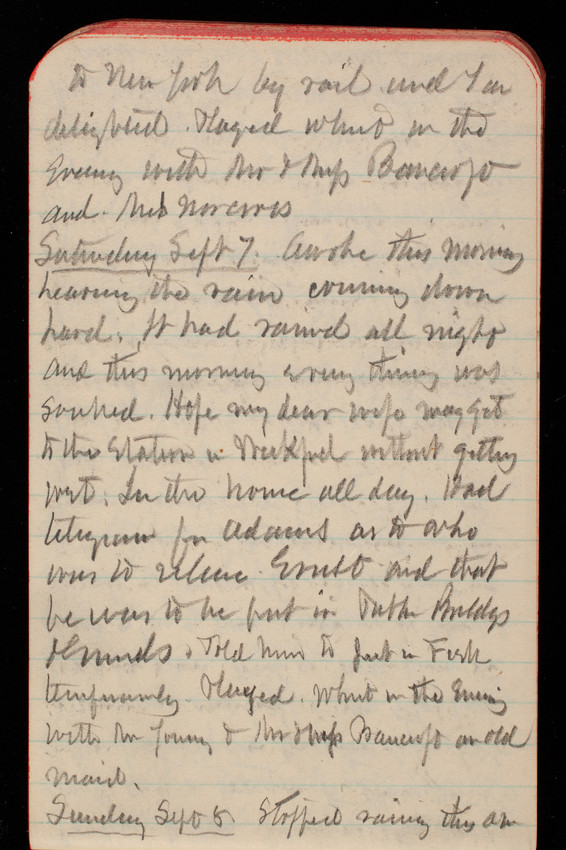 to New York by rail and I am
delighted. Played whist in the
Evening with Mr & Mrs Bancroft
and. Mrs Norcross
Saturday Sept 7. Awoke this morning
hearing the rain coming down
hard. It had rained all night
and this morning every thing was
soaked. Hope my dear wife may get
to the Station in without getting
wet. In the house all day. Had
telegram from Adams as to who
was to relieve Ernst and that
he was to be put in Public Buildgs
& Grounds. Told him to put in Fisk
temporarily. Played. Whist in the Evening
with Mr Young & Mr & Mrs Bancroft an old
maid.
Sunday Sept 8 Stopped raining this am